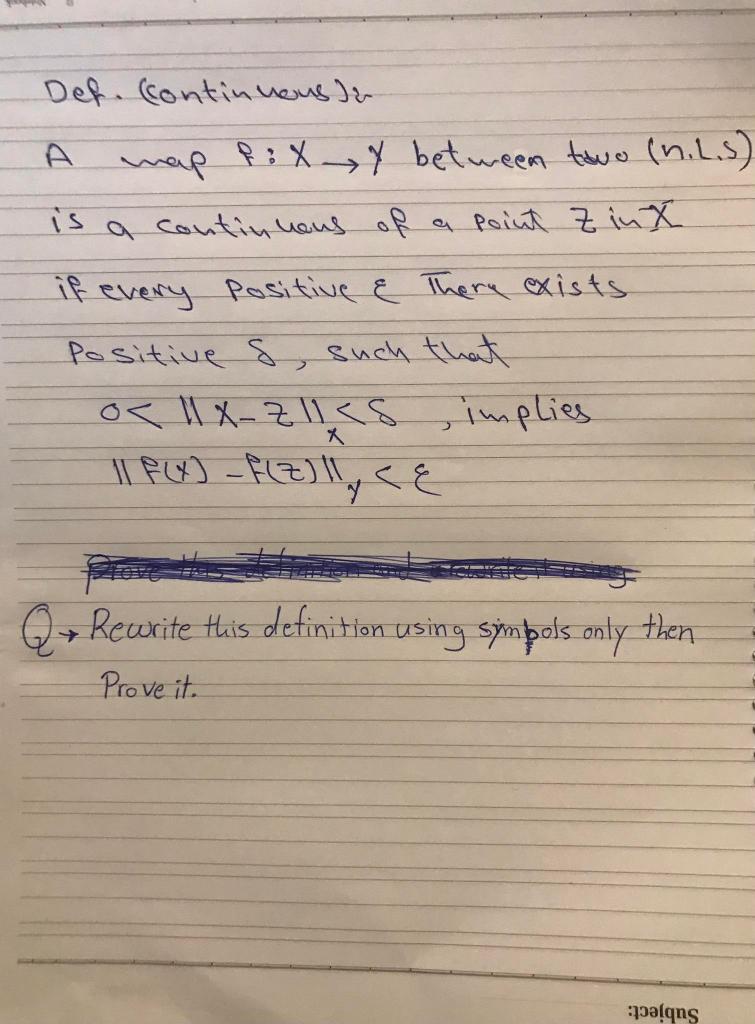 Def. (continuous):-
A map f: X → Y between two (n.L.s)
is a continuous of a point Z in X
if every Positive ε There exists
Positive δ, such that
0< || X-Z ||_X <δ , implies
|| f(X) - f(Z) ||_Y < ε
Q → Rewrite this definition using symbols only then
Prove it.
Subject: